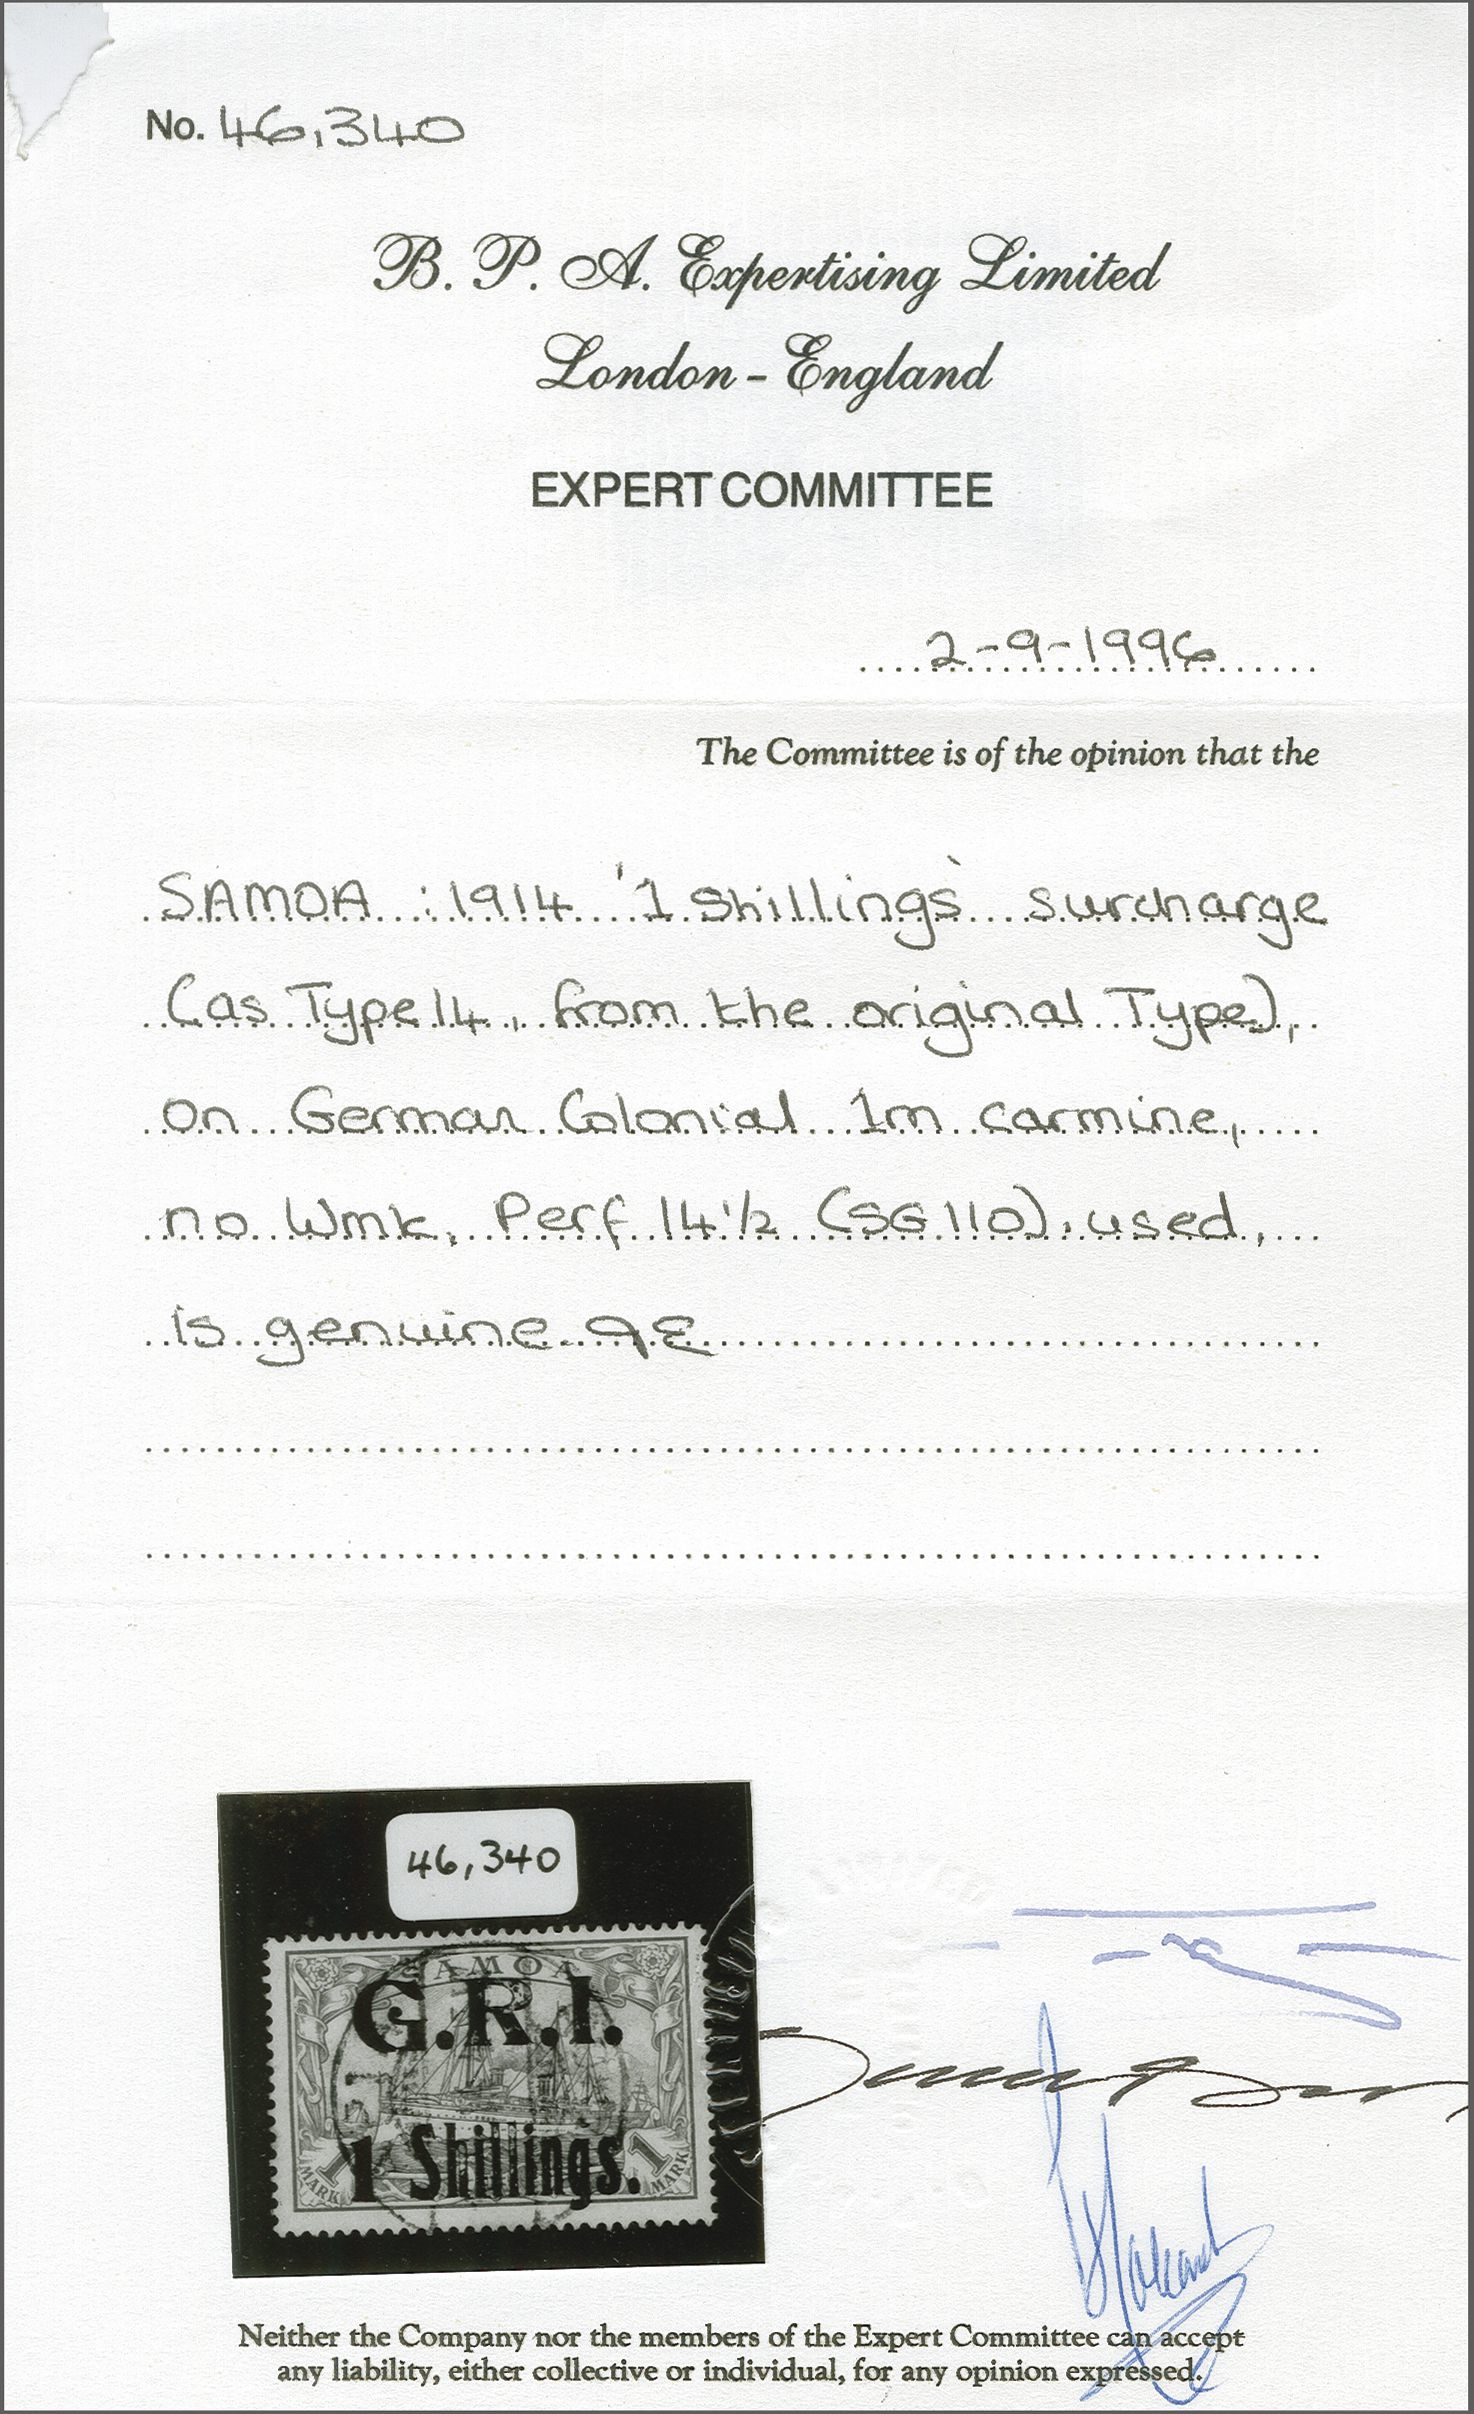 No. 46,340
B. P. A. Expertising Limited
London - England
EXPERT COMMITTEE
2-9-1996
The Committee is of the opinion that the
SAMOA : 1914 '1 Shillings' surcharge
(as Type 14, from the original Type),
on German Colonial 1m carmine,
no Wmk, Perf 14½ (SG 110), used,
is genuine.
46,340
SAMOA
G.R.I.
1 Shillings.
1 MARK
1 MARK
Neither the Company nor the members of the Expert Committee can accept
any liability, either collective or individual, for any opinion expressed.